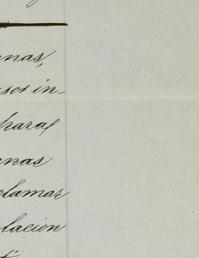 enas,
esos in-
para
enas
clamar
lacion